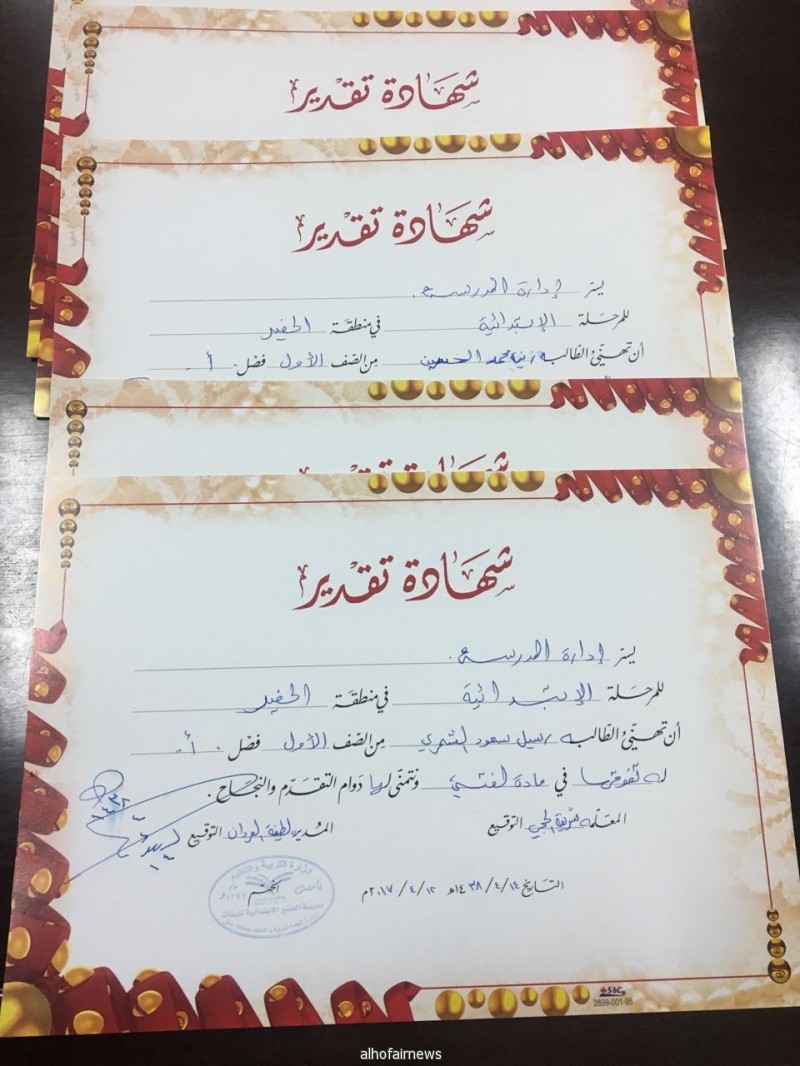 شهادة تقدير
شهادة تقدير
يسر إدارة المدرسة
للمرحلة الإبتدائية في منطقة الحفير
أن تهنئ الطالبه الحسين من الصف الأول فصل أ
شهادة تقدير
شهادة تقدير
يسر إدارة المدرسة
للمرحلة الإبتدائية في منطقة الحفير
أن تهنئ الطالبه رسيل سعود الشمري من الصف الأول فصل أ
لتفوقها في مادة لغتي ونتمنى لها دوام التقدم والنجاح .
المعلمه التوقيع المدير لطيفة العردان التوقيع
وزارة التربية والتعليم
الختم
مدرسة الحفير الابتدائية للبنات
التاريخ ١٤ / ٤ / ١٤٣٨هـ ١٢ / ٤ / ٢٠١٧م
SBC
2899-001-95
alhofairnews